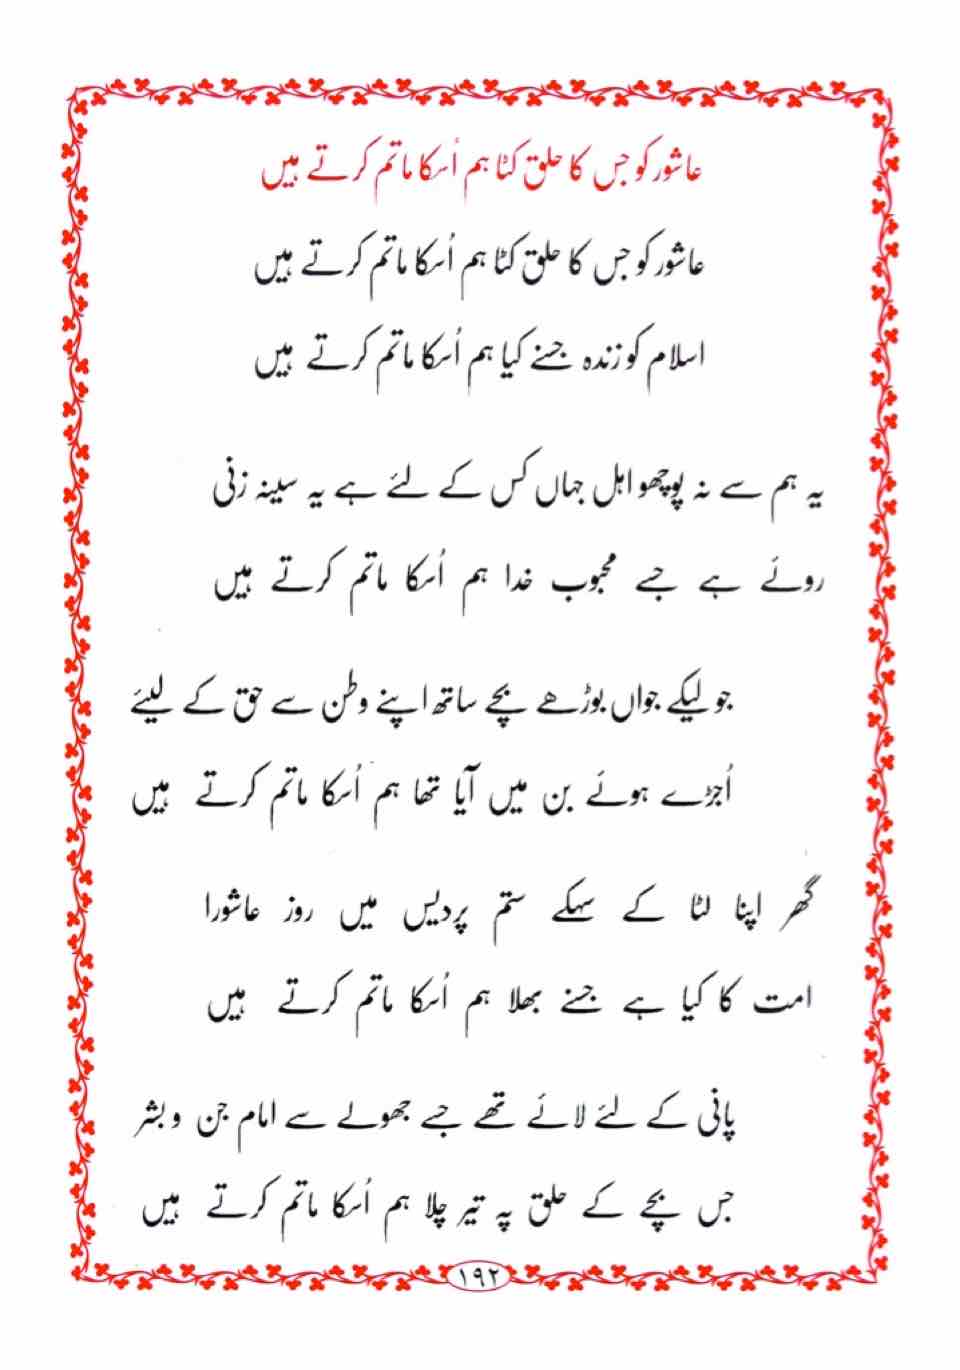 عاشور کو جس کا حلق کٹا ہم اُسکا ماتم کرتے ہیں
عاشور کو جس کا حلق کٹا ہم اُسکا ماتم کرتے ہیں
اسلام کو زندہ جسنے کیا ہم اُسکا ماتم کرتے ہیں
یہ ہم سے نہ پوچھو اہل جہاں کس کے لئے ہے یہ سینہ زنی
روئے ہے جسے محبوب خدا ہم اُسکا ماتم کرتے ہیں
جو لیکے جواں بوڑھے بچے ساتھ اپنے وطن سے حق کے لیئے
اُجڑے ہوئے بن میں آیا تھا ہم اُسکا ماتم کرتے ہیں
گھر اپنا لٹا کے سہکے ستم پردیس میں روز عاشورا
امت کا کیا ہے جسنے بھلا ہم اُسکا ماتم کرتے ہیں
پانی کے لئے لائے تھے جسے جھولے سے امام جن و بشر
جس بچے کے حلق پہ تیر چلا ہم اُسکا ماتم کرتے ہیں
۱۹۲